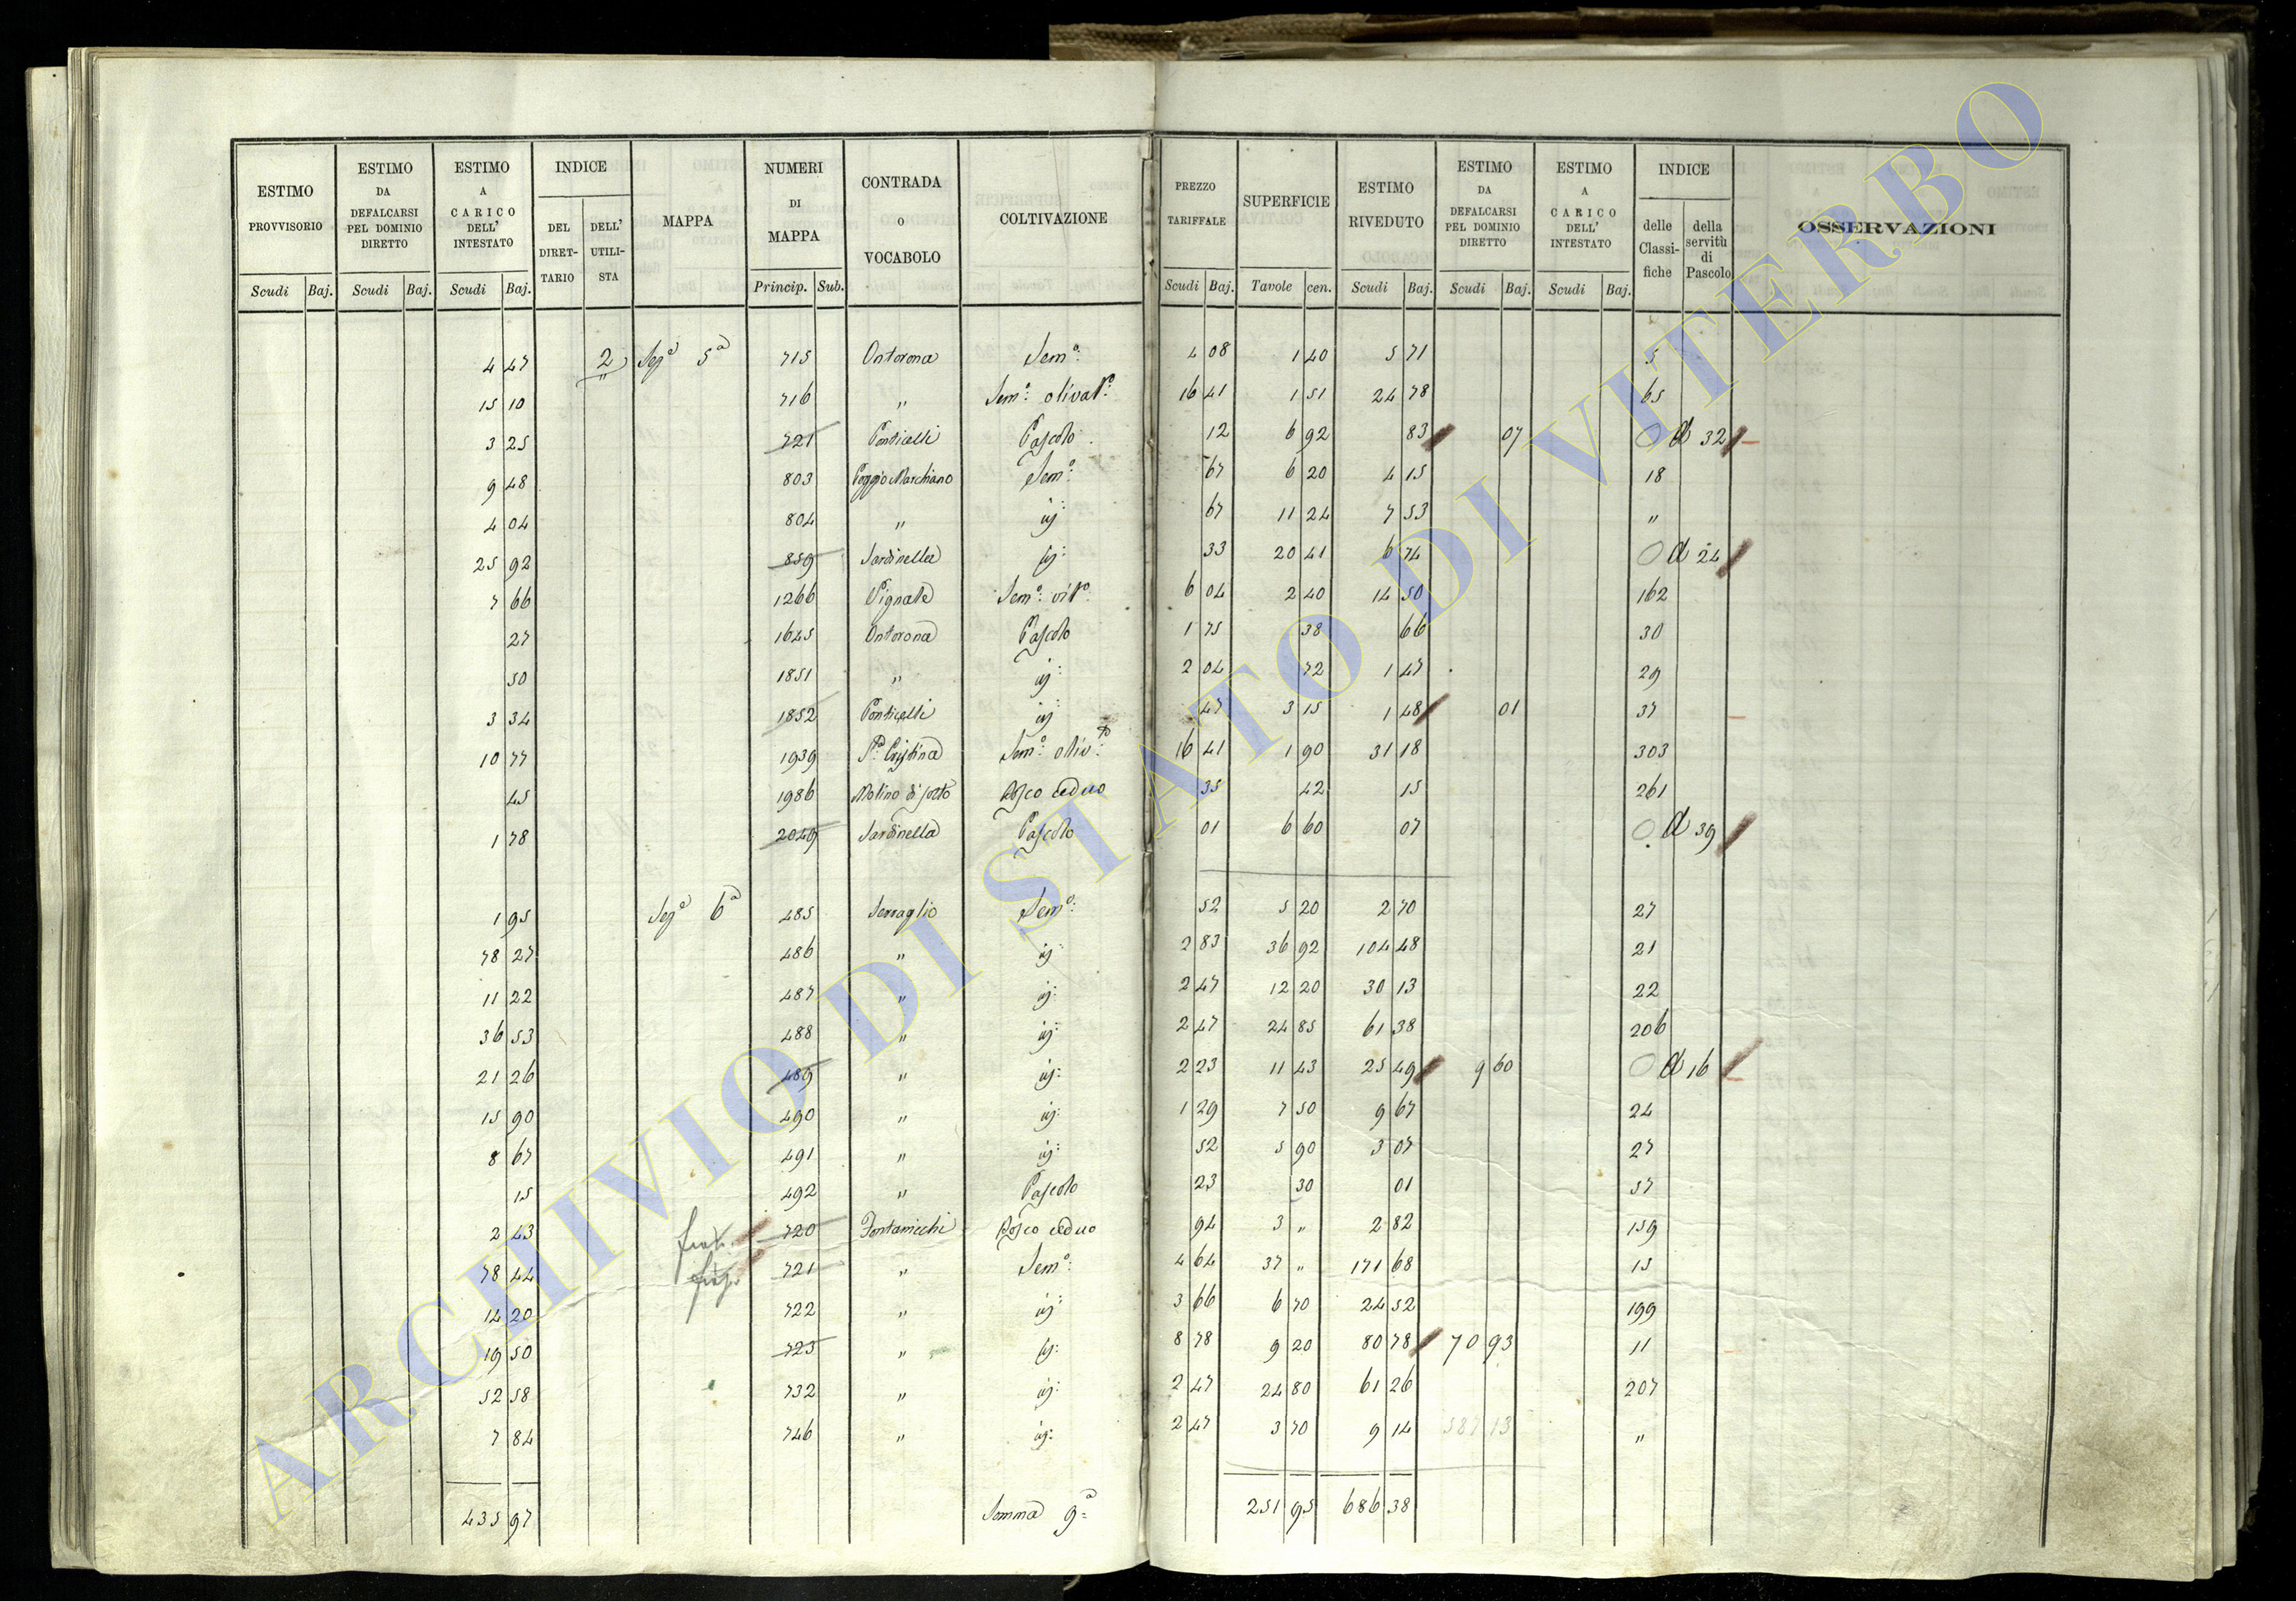 ESTIMO PROVVISORIO | ESTIMO DA DEFALCARSI PEL DOMINIO DIRETTO | ESTIMO A CARICO DELL' INTESTATO | INDICE DEL DIRET-TARIO | DELL' UTILI-STA | MAPPA | NUMERI DI MAPPA | CONTRADA O VOCABOLO | COLTIVAZIONE | PREZZO TARIFFALE | SUPERFICIE | ESTIMO RIVEDUTO | ESTIMO DA DEFALCARSI PEL DOMINIO DIRETTO | ESTIMO A CARICO DELL' INTESTATO | INDICE delle Classi-fiche | della servitù di Pascolo | OSSERVAZIONI
Scudi | Baj. | Scudi | Baj. | Scudi | Baj. | Princip. | Sub. | Scudi | Baj. | Tavole | cen. | Scudi | Baj. | Scudi | Baj. | Scudi | Baj.
4 47 | 2 | Segª 5ª | 715 | Ontorona | Semº: | 4 08 | 1 40 | 5 71 | 5
15 10 | 716 | " | Semº: olivatº: | 16 41 | 1 51 | 24 78 | 65
3 25 | 721 | Ponticelli | Pascolo | 12 | 6 92 | 83 | 07 | 0 | d 32
9 48 | 803 | Poggio Marchiano | Semº: | 67 | 6 20 | 4 15 | 18
4 04 | 804 | " | ij: | 67 | 11 24 | 7 53 | "
25 92 | 859 | Sardinella | ij: | 33 | 20 41 | 6 74 | 0 | d 24
7 66 | 1266 | Vignale | Semº: vitº: | 6 04 | 2 40 | 14 50 | 162
27 | 1645 | Ontorona | Pascolo | 1 75 | 38 | 66 | 30
50 | 1851 | " | ij: | 2 04 | 72 | 1 47 | 29
3 34 | 1852 | Ponticelli | ij: | 47 | 3 15 | 1 48 | 01 | 37
10 77 | 1939 | Sª: Cristina | Semº: olivº: | 16 41 | 1 90 | 31 18 | 303
45 | 1986 | Molino di sotto | Bosco ceduo | 35 | 42 | 15 | 261
1 78 | 2049 | Sardinella | Pascolo | 01 | 6 60 | 07 | 0 | d 39
1 95 | Segª 6ª | 485 | Serraglio | Semº: | 52 | 5 20 | 2 70 | 27
78 27 | 486 | " | ij: | 2 83 | 36 92 | 104 48 | 21
11 22 | 487 | " | ij: | 2 47 | 12 20 | 30 13 | 22
36 53 | 488 | " | ij: | 2 47 | 24 85 | 61 38 | 206
21 26 | 489 | " | ij: | 2 23 | 11 43 | 25 49 | 9 60 | 0 | d 16
15 90 | 490 | " | ij: | 1 29 | 7 50 | 9 67 | 24
8 67 | 491 | " | ij: | 52 | 5 90 | 3 07 | 27
15 | 492 | " | Pascolo | 23 | 30 | 01 | 37
2 43 | 720 | Fontanicchi | Bosco ceduo | 94 | 3 " | 2 82 | 159
78 44 | 721 | " | Semº: | 4 64 | 37 " | 171 68 | 15
14 20 | 722 | " | ij: | 3 66 | 6 70 | 24 52 | 199
19 50 | 723 | " | ij: | 8 78 | 9 20 | 80 78 | 70 93 | 11
52 58 | 732 | " | ij: | 2 47 | 24 80 | 61 26 | 207
7 84 | 746 | " | ij: | 2 47 | 3 70 | 9 14 | "
435 97 | Somma 9ª | 251 95 | 686 38
ARCHIVIO DI STATO DI VITERBO